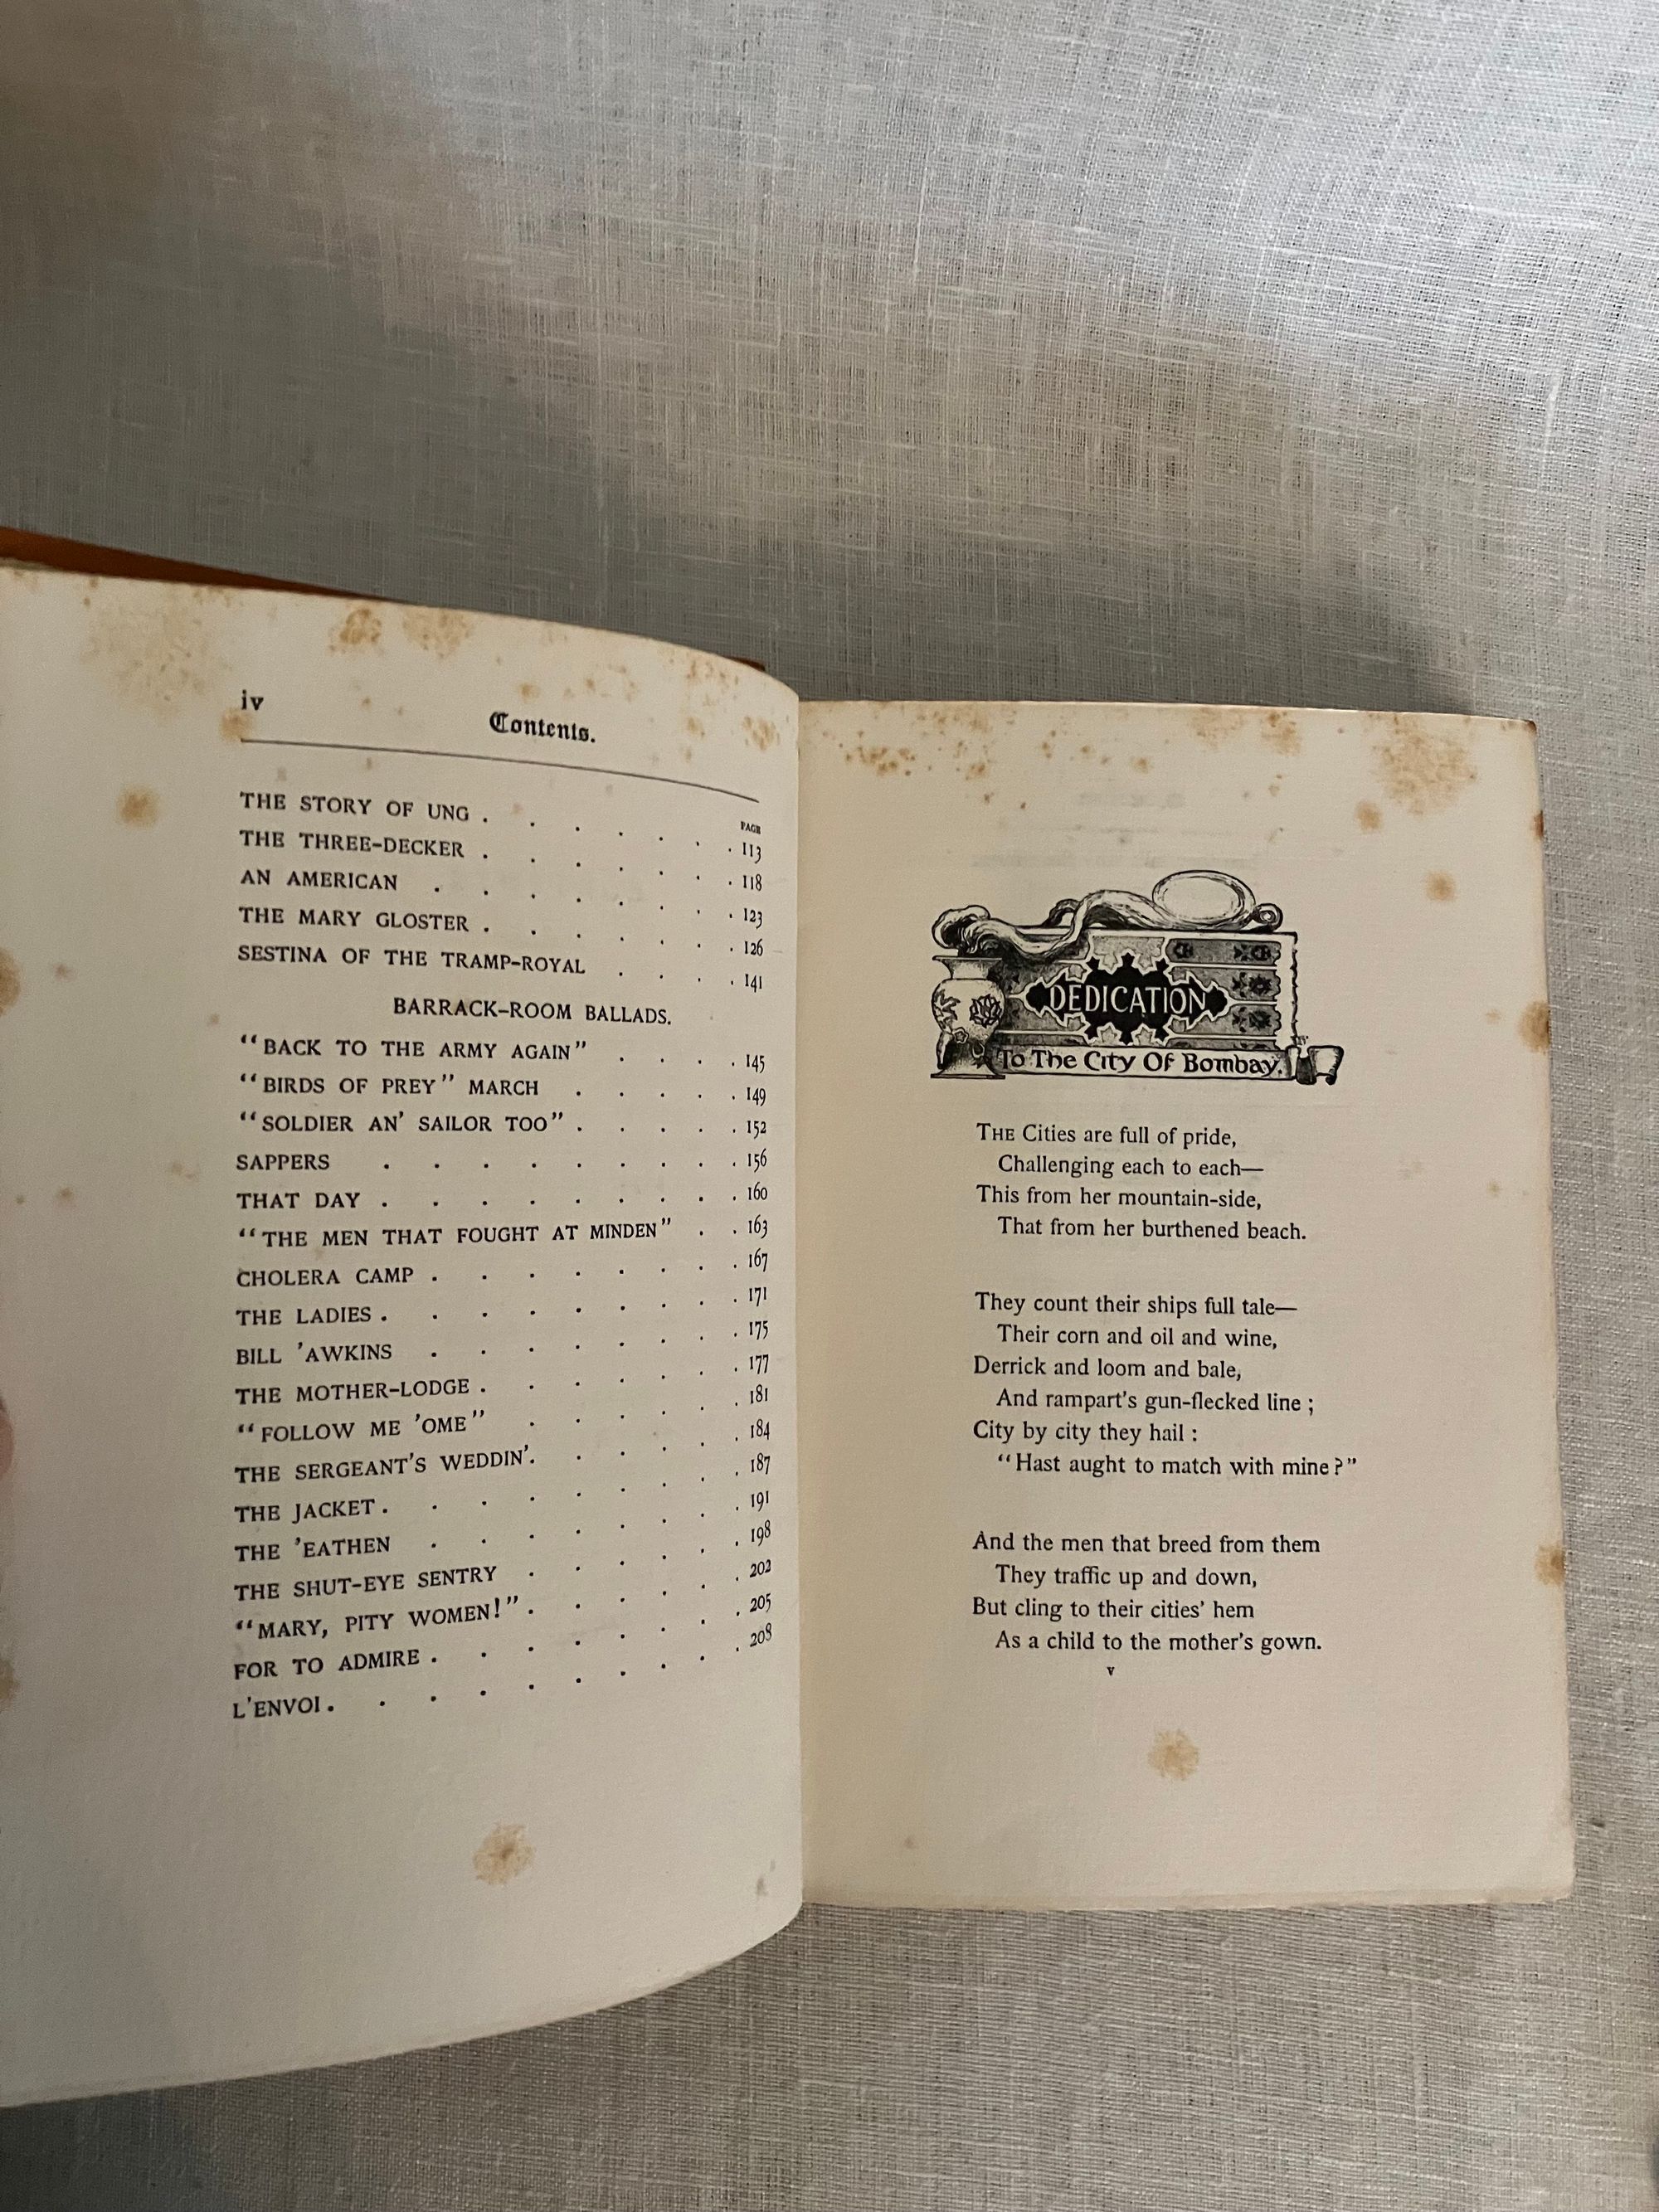 iv
Contents.
PAGE
THE STORY OF UNG . . . . . . . 113
THE THREE-DECKER . . . . . . . 118
AN AMERICAN . . . . . . . 123
THE MARY GLOSTER . . . . . . . 126
SESTINA OF THE TRAMP-ROYAL . . . . 141
BARRACK-ROOM BALLADS.
“BACK TO THE ARMY AGAIN” . . . . 145
“BIRDS OF PREY” MARCH . . . . . 149
“SOLDIER AN' SAILOR TOO” . . . . . 152
SAPPERS . . . . . . . . 156
THAT DAY . . . . . . . . 160
“THE MEN THAT FOUGHT AT MINDEN” . . 163
CHOLERA CAMP . . . . . . . 167
THE LADIES . . . . . . . . 171
BILL 'AWKINS . . . . . . . 175
THE MOTHER-LODGE . . . . . . 177
“FOLLOW ME 'OME” . . . . . 181
THE SERGEANT'S WEDDIN'. . . . . 184
THE JACKET . . . . . . . . 187
THE 'EATHEN . . . . . . . 191
THE SHUT-EYE SENTRY . . . . . 198
“MARY, PITY WOMEN!” . . . . . . 202
FOR TO ADMIRE . . . . . . . 205
L'ENVOI . . . . . . . . . 208
DEDICATION
To The City Of Bombay.
THE Cities are full of pride,
Challenging each to each—
This from her mountain-side,
That from her burthened beach.
They count their ships full tale—
Their corn and oil and wine,
Derrick and loom and bale,
And rampart's gun-flecked line ;
City by city they hail :
“Hast aught to match with mine?”
And the men that breed from them
They traffic up and down,
But cling to their cities' hem
As a child to the mother's gown.
v